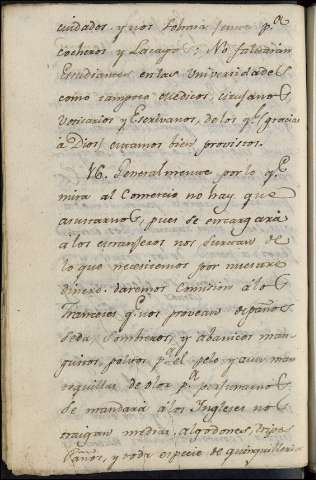 cuidados. y nos sobrará jente p.a
cocheros y Lacayos: No faltarán
Estudiantes en las Universidades
como tampoco Medicos, cirujanos
Voticarios y Escrivanos, de los q.s (gracias
á Dios) estamos bien provistos.
16. Generalmente por lo q.e
mira al Comercio no hay que
asustarnos, pues se encargará
á los estranjeros nos surtan de
lo que necesitemos por nuestro
dinero. daremos Comision á los
Franceses q.e nos provean de paños
seda, Sombreros, y abanicos man
guitos, polvos p.a el pelo, y aun man
tequillas de olor p.a perfumarnos
Se mandará á los Ingleses nos
traigan medias, algodones,
Paños, y toda especie de quinquilleria